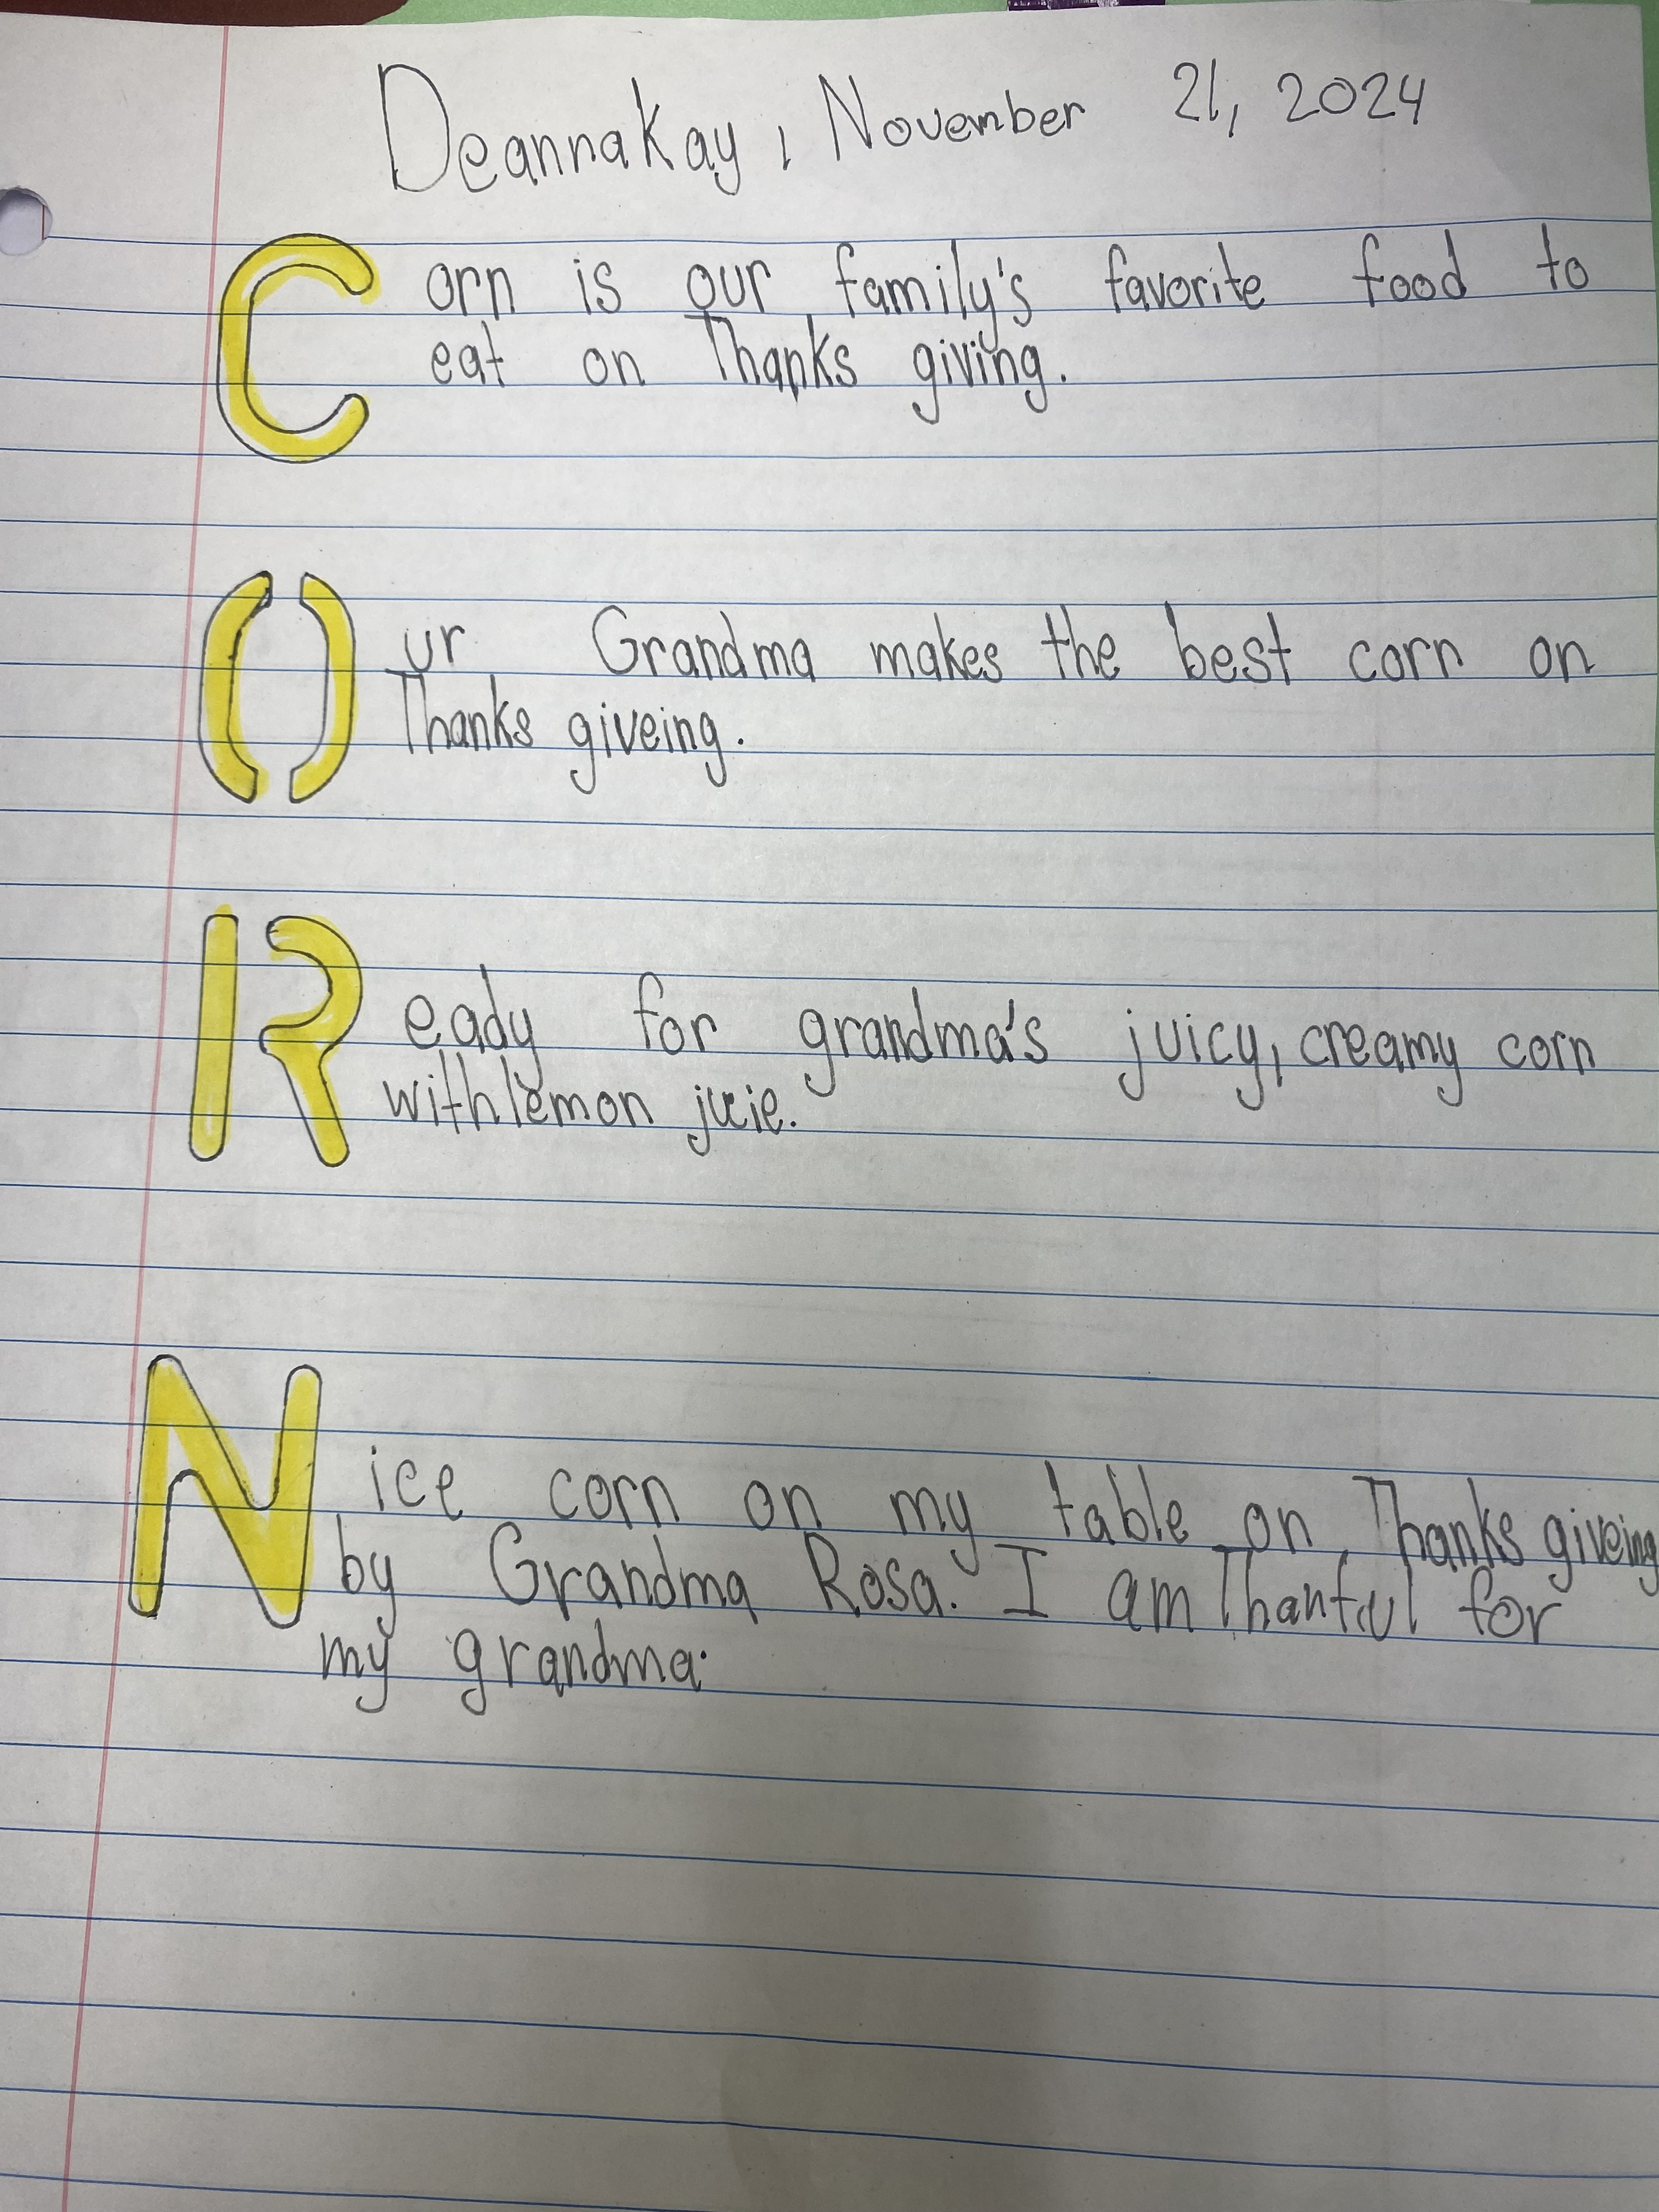 DeannaKay, November 21, 2024
Corn is our family's favorite food to
eat on Thanks giving.
Our Grandma makes the best corn on
Thanks giveing.
Ready for grandma's juicy, creamy corn
with lemon jucie.
Nice corn on my table on Thanks giveing
by Grandma Rosa. I am Thanful for
my grandma.